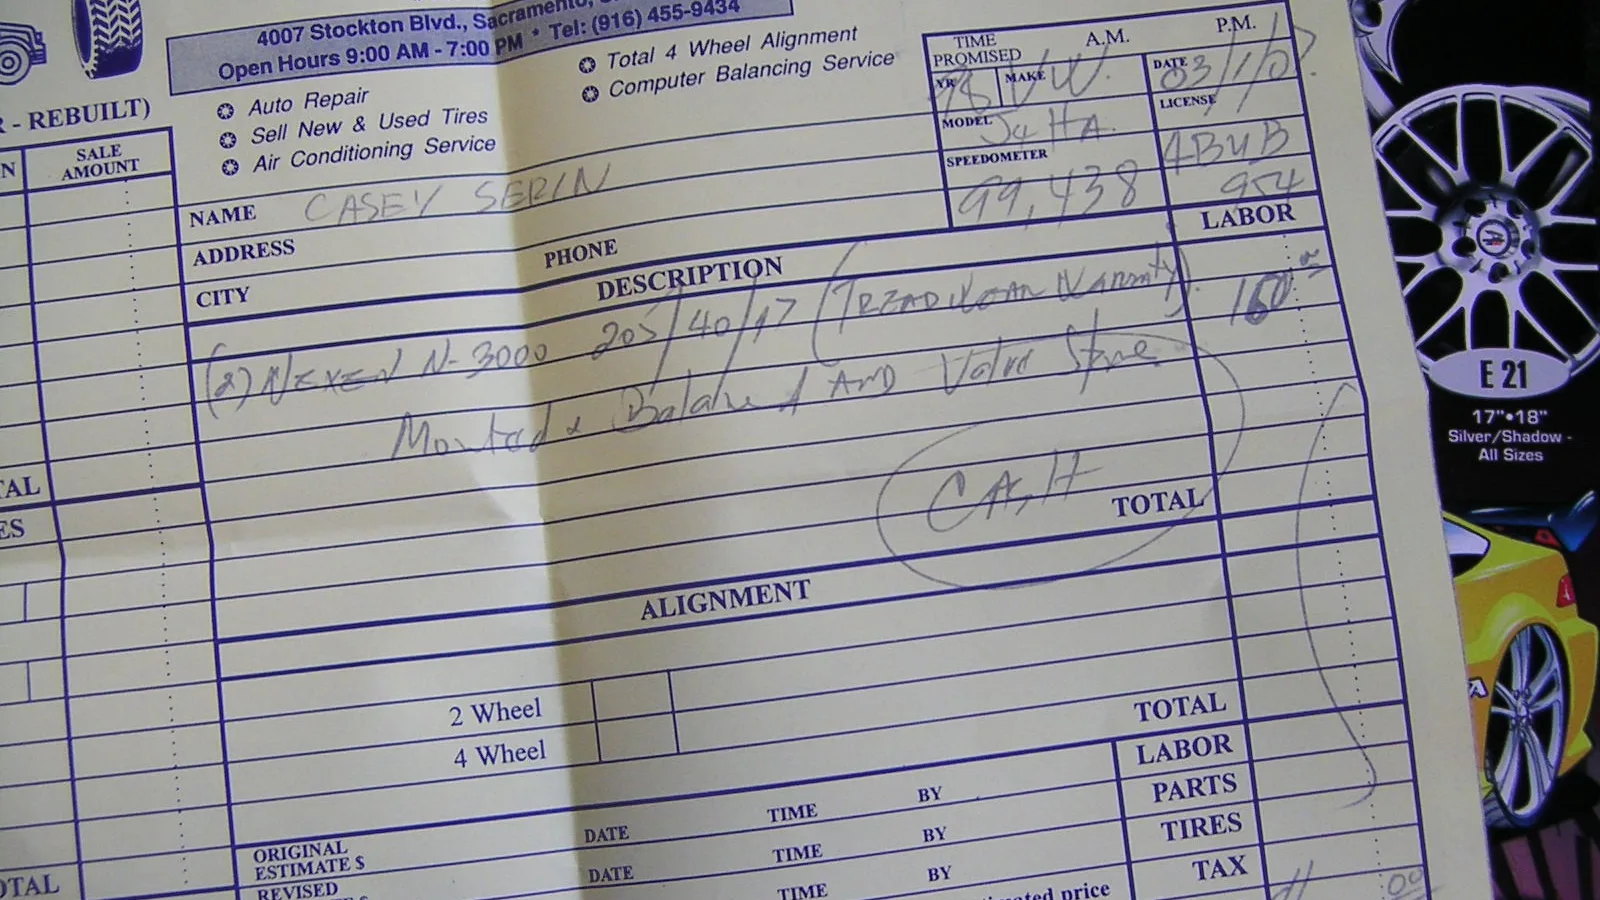 4007 Stockton Blvd., Sacramento,
Open Hours 9:00 AM - 7:00 PM * Tel: (916) 455-9434
Auto Repair
Sell New & Used Tires
Air Conditioning Service
Total 4 Wheel Alignment
Computer Balancing Service
TIME PROMISED A.M. P.M.
YR 98 MAKE VW. DATE 03/1/07
MODEL LICENSE
SPEEDOMETER 99,438 4BUB
954
- REBUILT)
SALE
AMOUNT
NAME CASEY SERIN
ADDRESS
PHONE
CITY
DESCRIPTION
LABOR
(2) NEXEN N-3000 205/40/17 (TREADWEAR Warranty) 160
Mounted & Balanced AND Valve Stems
CASH
TOTAL
ALIGNMENT
2 Wheel
4 Wheel
TOTAL
LABOR
PARTS
TIRES
TAX
ORIGINAL
ESTIMATE $ DATE TIME BY
REVISED
DATE TIME BY
TIME BY
price
00
E 21
17"•18"
Silver/Shadow -
All Sizes